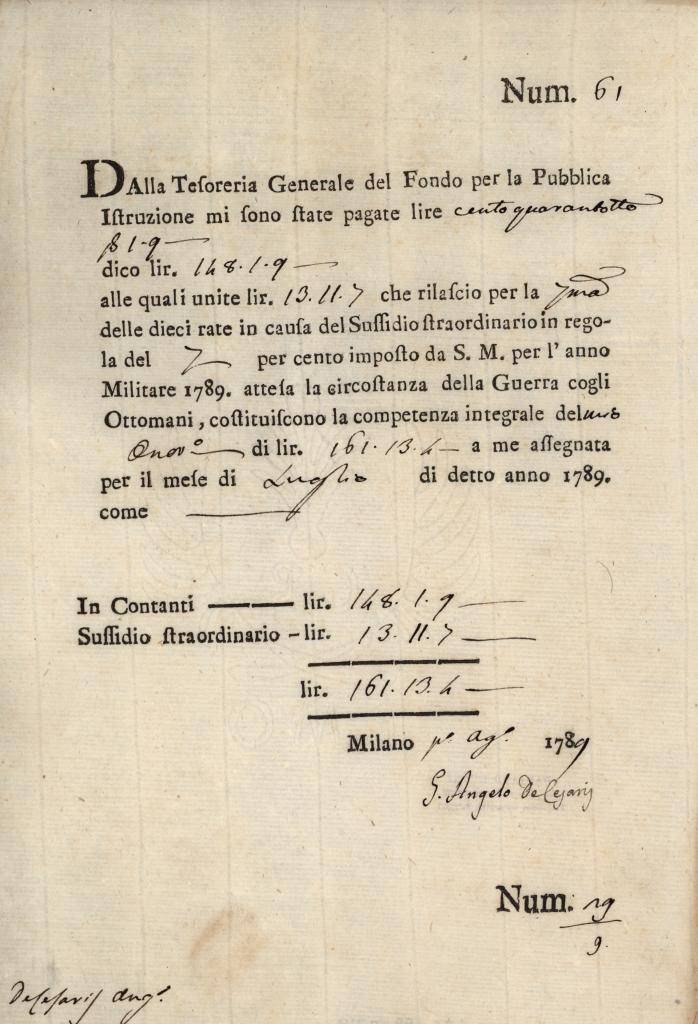 Num. 61
DAlla Teſoreria Generale del Fondo per la Pubblica
Iſtruzione mi ſono ſtate pagate lire cento quarantotto
ſ 1.9
dico lir. 148.1.9
alle quali unite lir. 13.11.7 che rilaſcio per la 7ma
delle dieci rate in cauſa del Suſſidio ſtraordinario in rego-
la del 7 per cento impoſto da S. M. per l' anno
Militare 1789. atteſa la circoſtanza della Guerra cogli
Ottomani, coſtituiſcono la competenza integrale del mio
Onor.o di lir. 161.13.4 a me aſſegnata
per il meſe di Luglio di detto anno 1789.
come
In Contanti — lir. 148.1.9
Suſſidio ſtraordinario - lir. 13.11.7
lir. 161.13.4
Milano po. ago. 1789
G. Angelo DeCesaris
Num. 29
9.
DeCesaris Ango.